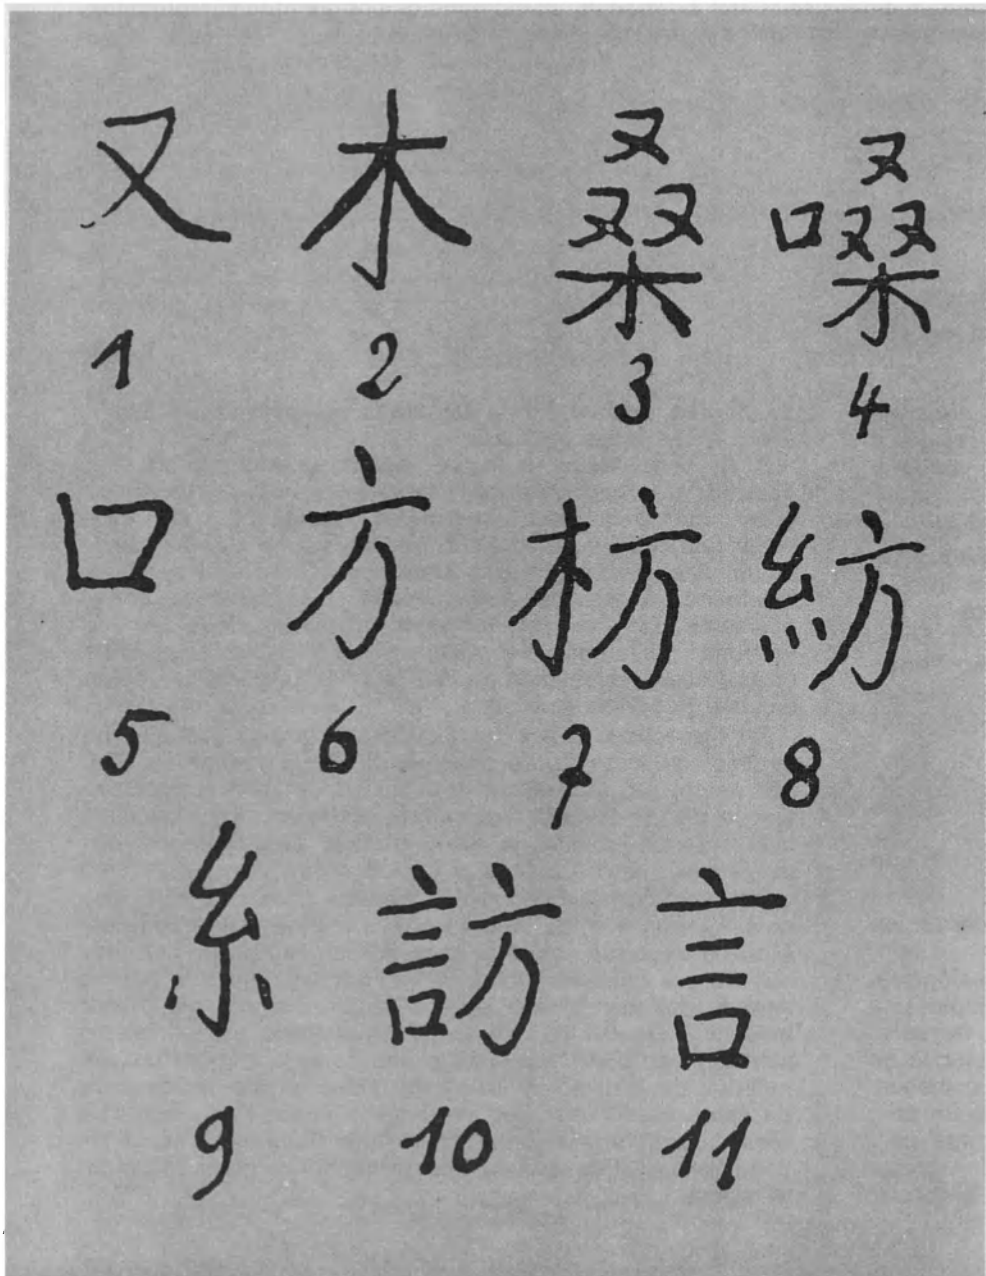 又 木 桑 嗓
1 2 3 4
口 方 枋 紡
5 6 7 8
糸 訪 言
9 10 11